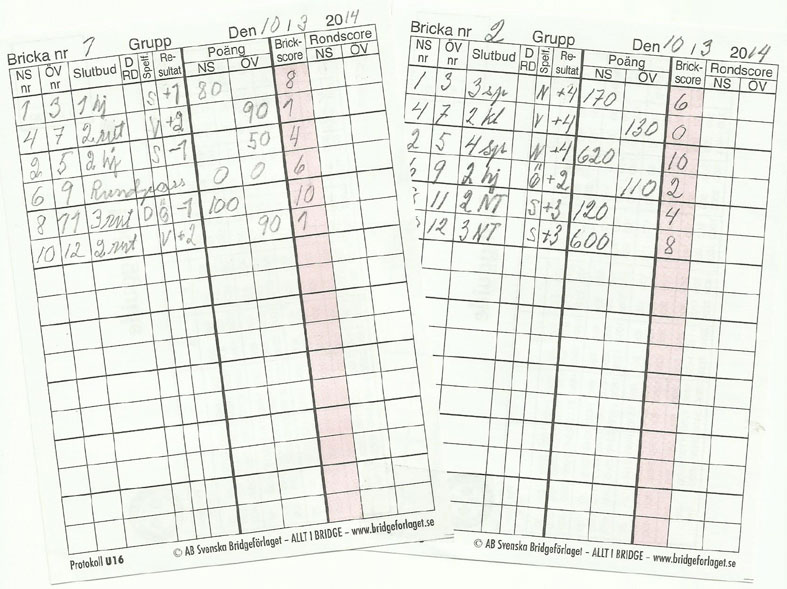 Bricka nr 1 Grupp Den 10 / 3 2014
NS nr ÖV nr Slutbud D RD Spelf. Re-sultat Poäng NS ÖV Brick-score Rondscore NS ÖV
1 3 1 hj S +1 80 8
4 7 2 rut V +2 90 1
2 5 2 hj S -1 50 4
6 9 Rundpass 0 0 6
8 11 3 rut D Ö -1 100 10
10 12 2 rut V +2 90 1
Protokoll U16
© AB Svenska Bridgeförlaget – ALLT I BRIDGE – www.bridgeforlaget.se
Bricka nr 2 Grupp Den 10 / 3 2014
NS nr ÖV nr Slutbud D RD Spelf. Re-sultat Poäng NS ÖV Brick-score Rondscore NS ÖV
1 3 3 sp N +4 170 6
4 7 2 kl V +4 130 0
2 5 4 sp N +4 620 10
9 2 hj Ö +2 110 2
11 2 NT S +3 120 4
12 3 NT S +3 600 8
© AB Svenska Bridgeförlaget – ALLT I BRIDGE – www.bridgeforlaget.se